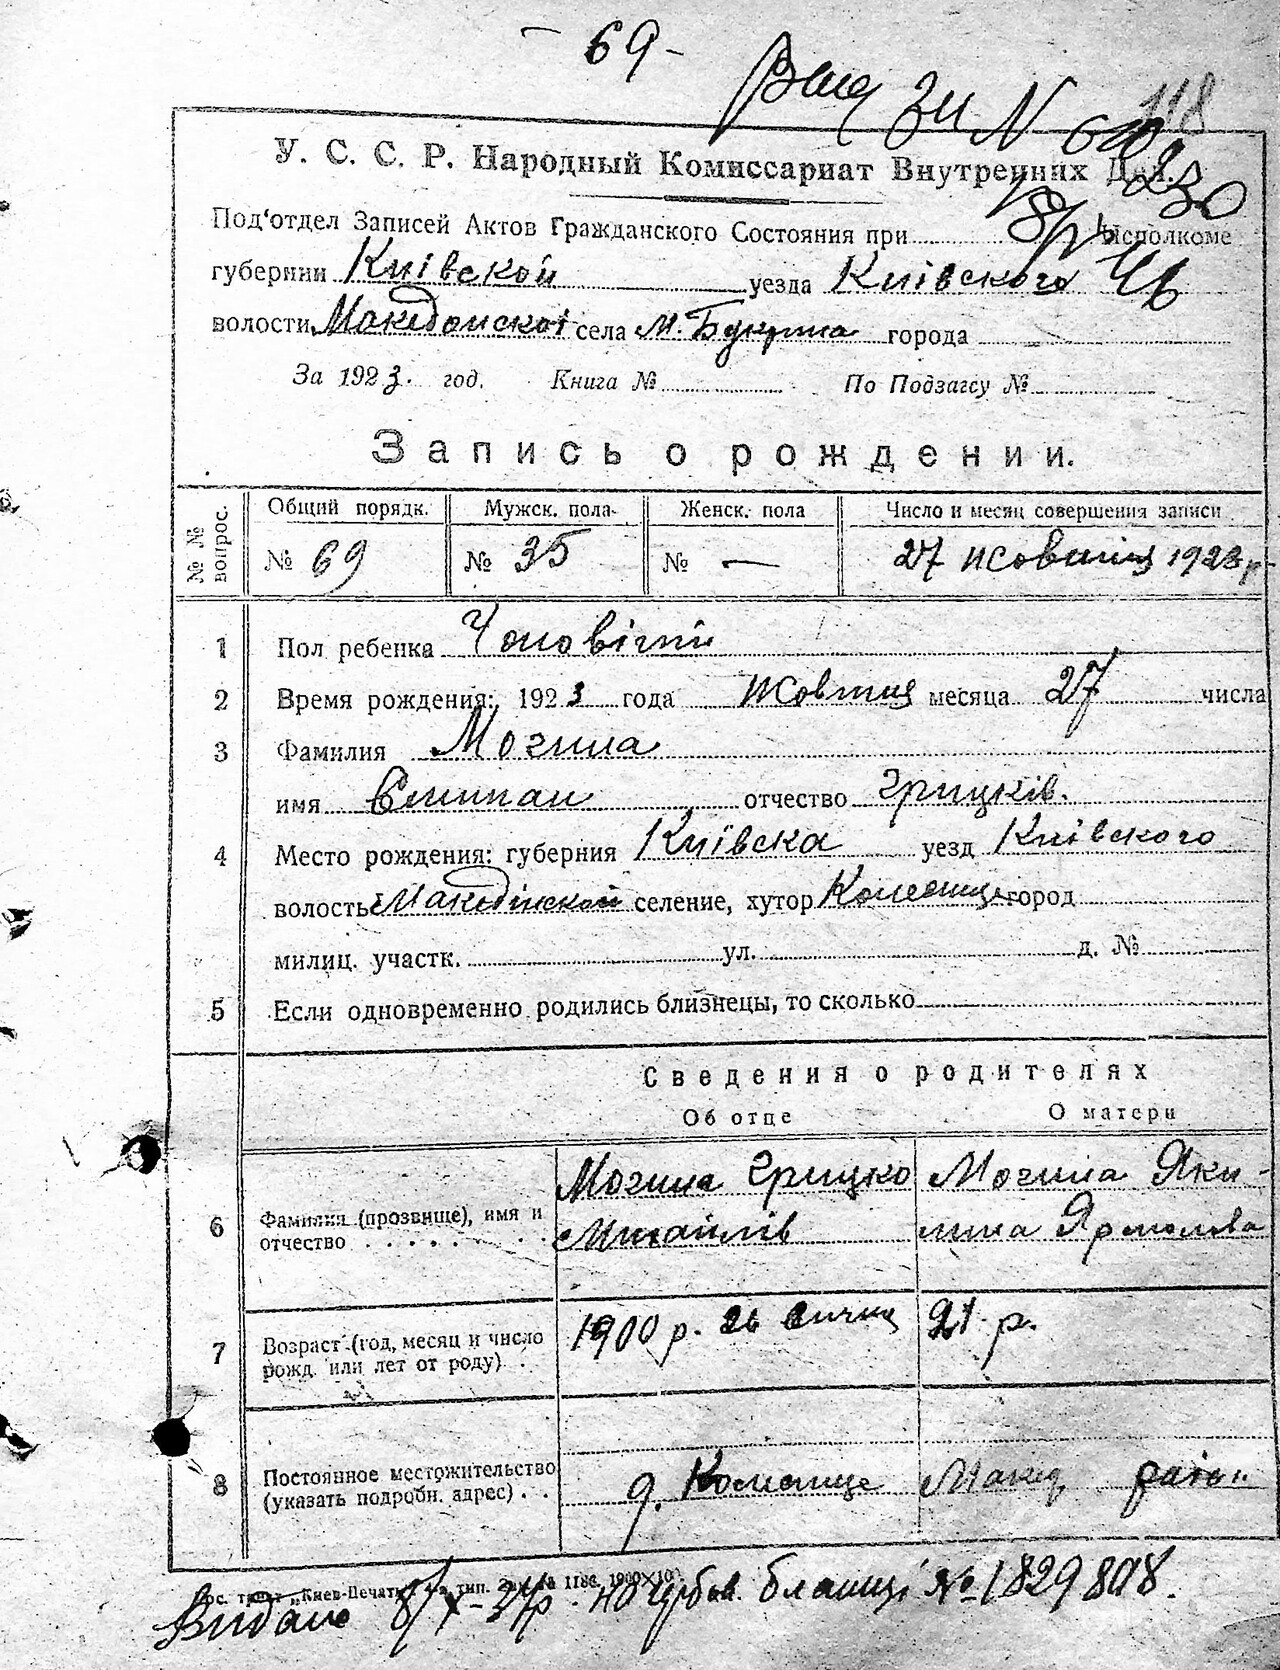 - 69 -
118
У. С. С. Р. Народный Комиссариат Внутренних Дел.
Под'отдел Записей Актов Гражданского Состояния при исполкоме
губернии Київской уезда Київского
волости села м. Букрина города
За 1923. год. Книга № По Подзагсу №
Запись о рождении.
№ № вопрос. Общий порядк. Мужск. пола Женск. пола Число и месяц совершения записи
№ 69 № 35 № — 27 жовтня 1923 р.
1 Пол ребенка Чоловічий
2 Время рождения: 1923 года жовтня месяца 27 числа
3 Фамилия Могила
имя Степан отчество Грицків.
4 Место рождения: губерния Київска уезд Київского
волость селение, хутор город
милиц. участк. ул. д. №
5 Если одновременно родились близнецы, то сколько
Сведения о родителях
Об отце О матери
6 Фамилия (прозвище), имя и отчество Могила Грицко Михайлів Могила Якилина Ярмолова
7 Возраст (год, месяц и число рожд. или лет от роду) 1900 р. 26 січня 21 р.
8 Постоянное местожительство (указать подробн. адрес) д. Колесище Макед. район
Видано 8/X-37р. бланці № 1829808.